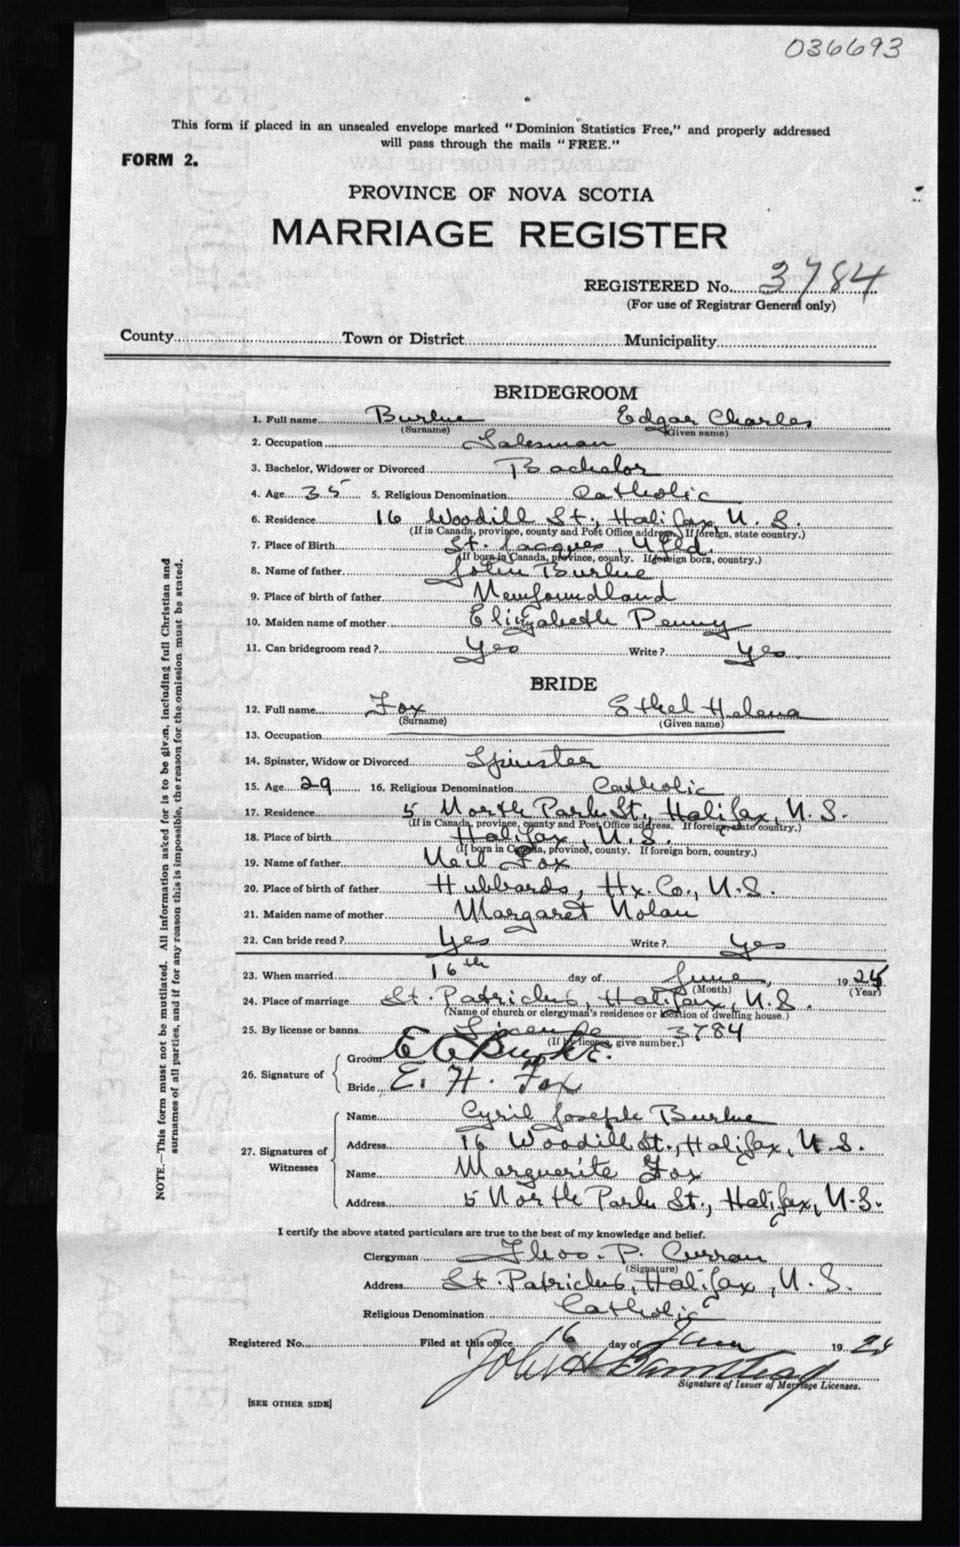 036693
This form if placed in an unsealed envelope marked "Dominion Statistics Free," and properly addressed
will pass through the mails "FREE."
FORM 2.
PROVINCE OF NOVA SCOTIA
MARRIAGE REGISTER
REGISTERED No. 3784
(For use of Registrar General only)
County Town or District Municipality
BRIDEGROOM
1. Full name Burke Edgar Charles
(Surname) (Given name)
2. Occupation Salesman
3. Bachelor, Widower or Divorced Bachelor
4. Age 35 5. Religious Denomination Catholic
6. Residence 16 Woodill St., Halifax, N. S.
(If in Canada, province, county and Post Office address. If foreign, state country.)
7. Place of Birth St. Jacques, Nfld.
(If born in Canada, province, county. If foreign born, country.)
8. Name of father John Burke
9. Place of birth of father Newfoundland
10. Maiden name of mother Elizabeth Penny
11. Can bridegroom read? Yes Write? Yes.
BRIDE
12. Full name Fox Ethel Helena
(Surname) (Given name)
13. Occupation
14. Spinster, Widow or Divorced Spinster
15. Age 29 16. Religious Denomination Catholic
17. Residence 5 North Park St., Halifax, N. S.
(If in Canada, province, county and Post Office address. If foreign, state country.)
18. Place of birth Halifax, N. S.
(If born in Canada, province, county. If foreign born, country.)
19. Name of father Neil Fox
20. Place of birth of father Hubbards, Hx. Co., N. S.
21. Maiden name of mother Margaret Nolan
22. Can bride read? Yes Write? Yes
23. When married 16th day of June, 1925
(Month) (Year)
24. Place of marriage St. Patrick's, Halifax, N. S.
(Name of church or clergyman's residence or location of dwelling house.)
25. By license or banns License 3784
(If by license, give number.)
26. Signature of
Groom E C Burke.
Bride E. H. Fox
27. Signatures of Witnesses
Name Cyril Joseph Burke
Address 16 Woodill St., Halifax, N. S.
Name Marguerite Fox
Address 5 North Park St., Halifax, N. S.
I certify the above stated particulars are true to the best of my knowledge and belief.
Clergyman Thos. P. Curran
(Signature)
Address St. Patrick's, Halifax, N. S.
Religious Denomination Catholic
Registered No. Filed at this office 16 day of June 1925
Signature of Issuer of Marriage Licenses.
[SEE OTHER SIDE]
NOTE.—This form must not be mutilated. All information asked for is to be given, including full Christian and
surnames of all parties, and if for any reason this is impossible, the reason for the omission must be stated.